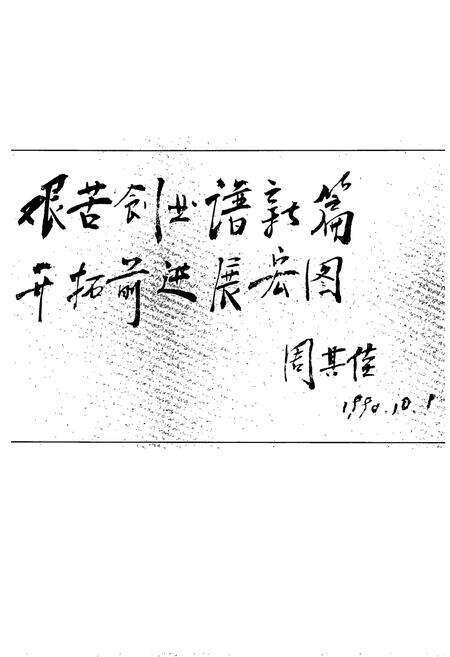 艰苦创业谱新篇
开拓前进展宏图
周其佳
1990.10.1